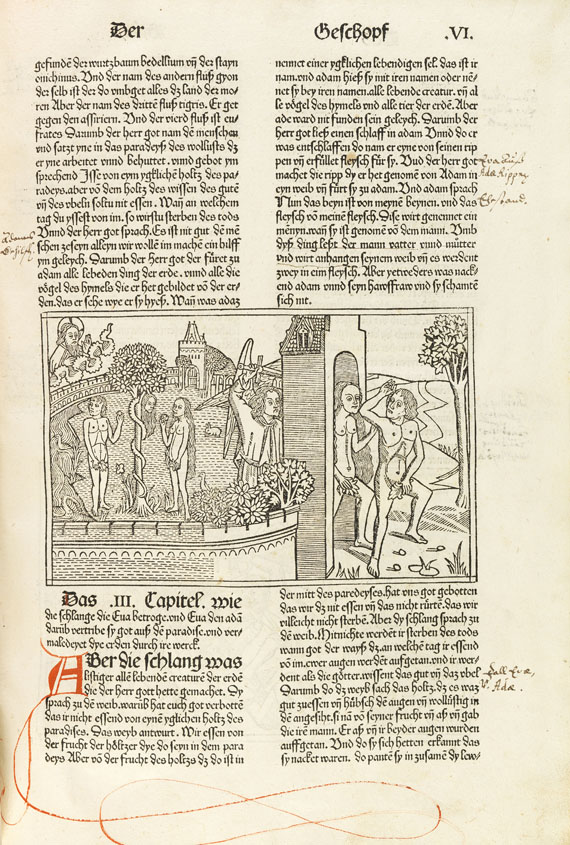 Der Geschopf .VI.
gefundē der wurtzbaum bedellium vñ der stayn
onichinus. Vnd der nam des andern fluß gyon
der selb ist der do vmbget alles dz land der mo-
ren Aber der nam des drittē fluß tigris. Er get
gegen den assiriern. Vnd der vierd fluß ist eu-
frates Darumb der herr got nam dē menschen
vnd satzt yne in das paradeyß des wollusts dz
er yne arbeitet vnnd behuttet. vnnd gebot ym
sprechend Isse von eym yglichē holtz des pa-
radeys. aber vō dem holtz des wissen des gutē
vñ des vbeln soltu nit essen. Wañ an welchem
tag du yssest von im. so wirstu sterben des tods
Vnnd der herr got sprach. Es ist nit gut dē mē
schen zeseyn alleyn wir wollē im machē ein hilff
ym geleych. Darumb der herr got der fůret zu
adam alle lebeden ding der erde. vnnd alle die
vögel des hymels die er het gebildet vō der er-
den. das er sche wye er sy hyeß. Wañ was adaz
nennet einer ygklichen lebendigen sel. das ist ir
nam. vnd adam hieß sy mit iren namen oder nē-
net sy bey iren namen. alle lebende creatur. vñ al
le vögel des hymels vnd alle tier der erdē. Aber
ade ward nit funden sein geleych. Darumb der
herr got ließ einen schlaff in adam Vnnd do er
was entschlaffen do nam er eyne von seinen rip
pen vñ erfüllet fleysch für sy. Vnd der herr got
machet die ripp dy er het genomē von Adam in
eyn weib vñ fürt sy zu adam. Vnd adam sprach
Nun das beyn ist von meynē beynen. vnd das
fleysch vō meinē fleysch. Dise wirt genennet ein
mēnyn. wañ sy ist genomē vō dem mann. Vmb
dyß ding leßt der mann vatter vnnd mutter
vnd wirt anhangen seynem weib vñ es werdent
zwey in eim fleysch. Aber yetweders was nack-
end adam vnnd seyn hawsfraw vnd sy schamtē
sich nit.
Das .III. Capitel. wie
die schlange die Eua betroge. vnd Euen den adā
darüb vertribe sy got auß dē paradise. vnd ver-
maledeyet dye erden durch ire werck.
ABer die schlang was
listiger allē lebendē creaturē der erdē
die der herr gott hette gemachet. Dy
sprach zu dē weib. warüb hat euch got verbottē
das ir nicht essend von eynē yglichen holtz des
paradises. Das weyb antwurt. Wir essen von
der frucht der höltzer dye do seyn in dem para
deys Aber vō der frucht des holtzs dz do ist in
der mitt des paredeyses. hat vns got gebotten
das wir dz nit essen vñ das nicht rürtē. das wir
villeicht nicht sterbē. Aber dy schlang sprach zu
dē weib. Mitnichte werdēt ir sterben des tods
wann got der wayß dz. an welchē tag ir essend
vō im. ewer augen werdēt aufgetan. vnd ir wer-
dent als die götter. wissent das gut vñ daz vbel
Darumb do dz weyb sach das holtz. dz es waz
gut zuessen vñ hübsch dē augen vñ wollüstig in
dē angesiht. sj nā vō seyner frucht vñ aß vñ gab
die irē mann. Er aß vñ ir beyder augen wurden
auffgetan. Vnd do sy sich hetten erkannt das
sy nacket waren. do pantē sy in zusamē dy lew-